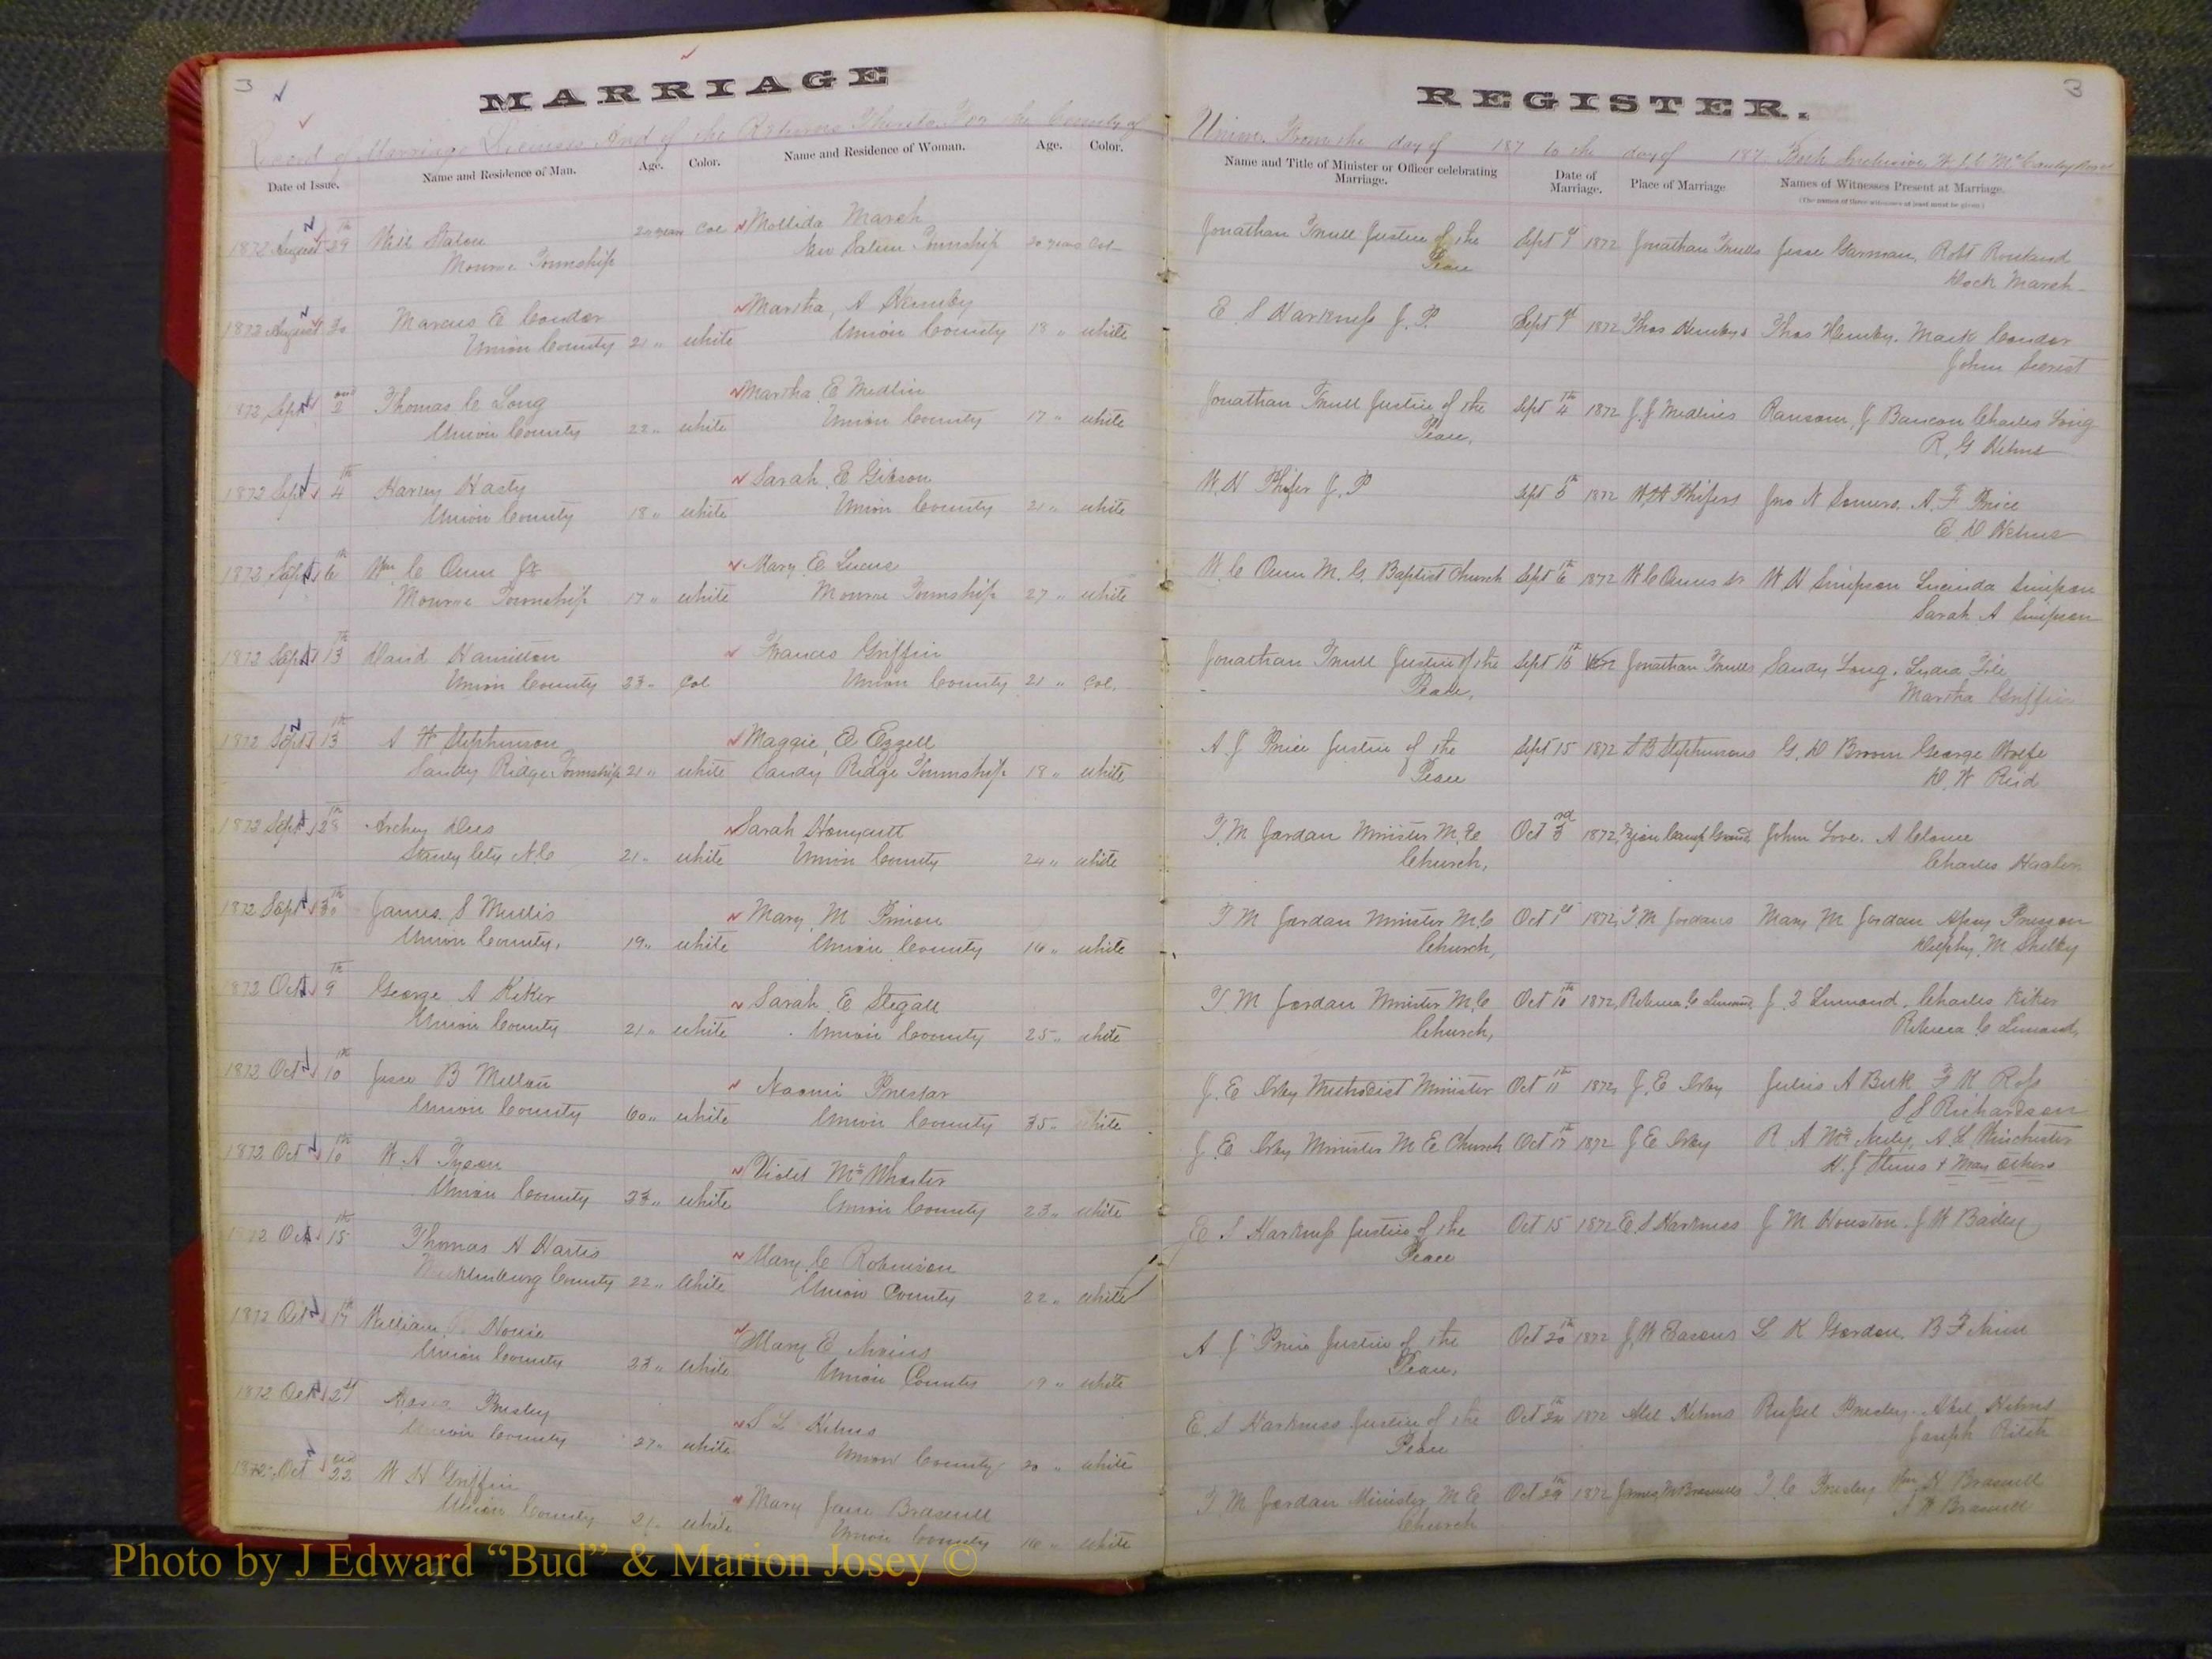 3
MARRIAGE
Record of Marriage Licenses And of the Returns Thereto For the County of
Date of Issue. Name and Residence of Man. Age. Color. Name and Residence of Woman. Age. Color.
1872 August 29th Will 20 years Col Marsh
Monroe Township New Salem Township 20 years Col
1872 August 30 Marcus E Conder Martha, A Hemby
Union County 21 " white Union County 18 " white
1872 Sept 2nd Thomas C Long Martha E Medlin
Union County 22 " white Union County 17 " white
1872 Sept 4th Harvey Hasty Sarah E Gibson
Union County 18 " white Union County 21 " white
1872 Sept 6th Wm C Mary E
Monroe Township 17 " white Monroe Township 27 " white
1872 Sept 13th David Hamilton Frances Griffin
Union County 23 " Col Union County 21 " Col.
1872 Sept 13th A W Stephenson Maggie E Ezzell
Sandy Ridge Township 21 " white Sandy Ridge Township 18 " white
1872 Sept 28th Archey Sarah Honeycutt
Stanly N.C 21 " white Union County 24 " white
1872 Sept 30th James S Mullis Mary M Pinion
Union County, 19 " white Union County 16 " white
1872 Oct 9th George A Kiker Sarah E Stegall
Union County 21 " white Union County 25 " white
1872 Oct 10th Jesse B Naomi
Union County 60 " white Union County 35 " white
1872 Oct 10th W. A Tyson Violet McWhorter
Union County 23 " white Union County 23 " white
1872 Oct 15th Thomas H Hartis Mary C Robinson
Mecklenburg County 22 " white Union County 22 " white
1872 Oct 17th William Howie Mary E Nivins
Union County 23 " white Union County 19 " white
1872 Oct 21st Presley S L Helms
Union County 27 " white Union County 20 " white
1872 Oct 22nd W H Griffin Mary Jane Braswell
Union County 21 " white Union County 16 " white
3
REGISTER.
Union, From the day of 187 to the day of 187 Both Inclusive,
Name and Title of Minister or Officer celebrating Marriage. Date of Marriage. Place of Marriage Names of Witnesses Present at Marriage.
(The names of three witnesses at least must be given)
Jonathan Trull Justice of the Sept 1872 Jonathan Trulls Jesse Garman, Robt Rowland
Peace Marsh
E. S Harkness J. P. Sept 1872 Thos Hembys Thos Hemby. Mark Conder
John Secrest
Jonathan Trull Justice of the Sept 4th 1872 J. J Medlins Ransom, J Baucom Charles Long
Peace, R, G Helms
W. H Phifer J. P Sept 5th 1872 W, H Phifers Jno N Somers. A. F Price
E, D Helms
W. C M. G. Baptist Church Sept 6th 1872 W H Simpson Lucinda Simpson
Sarah A Simpson
Jonathan Trull Justice of the Sept 15th Jonathan Trulls Sandy Long.
Peace, Martha Griffin
A. J Price Justice of the Sept 15 1872 S B Stephensons G. D Broom George Wolfe
Peace D, W Reid
T. M Jordan Minister M. E Oct 3rd 1872, Zion Camp Ground, John Love.
Church, Charles
T M Jordan Minister M. E Oct 1st 1872, T. M Jordans Mary M Jordan
Church, M Shelby
T. M Jordan Minister M. E Oct 10th 1872, Rebecca C J. Lemond. Charles Kiker
Church, Rebecca C Lemond,
J. E Irby Methodist Minister Oct 11th 1872, J. E Irby Julius A F K Ross
S S Richardson
J. E Irby Minister M E Church Oct 17th 1872 J E Irby R A A L Winchester
H. J & Many Others
E S Harkness Justice of the Oct 15 1872 E. S Harkness J M Houston. J W Bailey
Peace
A J Price Justice of the Oct 20th 1872 J, W L K Gordon. B F
Peace,
E. S Harkness Justice of the Oct 24th 1872 Abel Helms Presley. Abel Helms
Peace Joseph
T M Jordan Minister M E Oct 29th 1872 T. C Presley Wm H Braswell
Church A W Braswell
Photo by J Edward “Bud” & Marion Josey ©